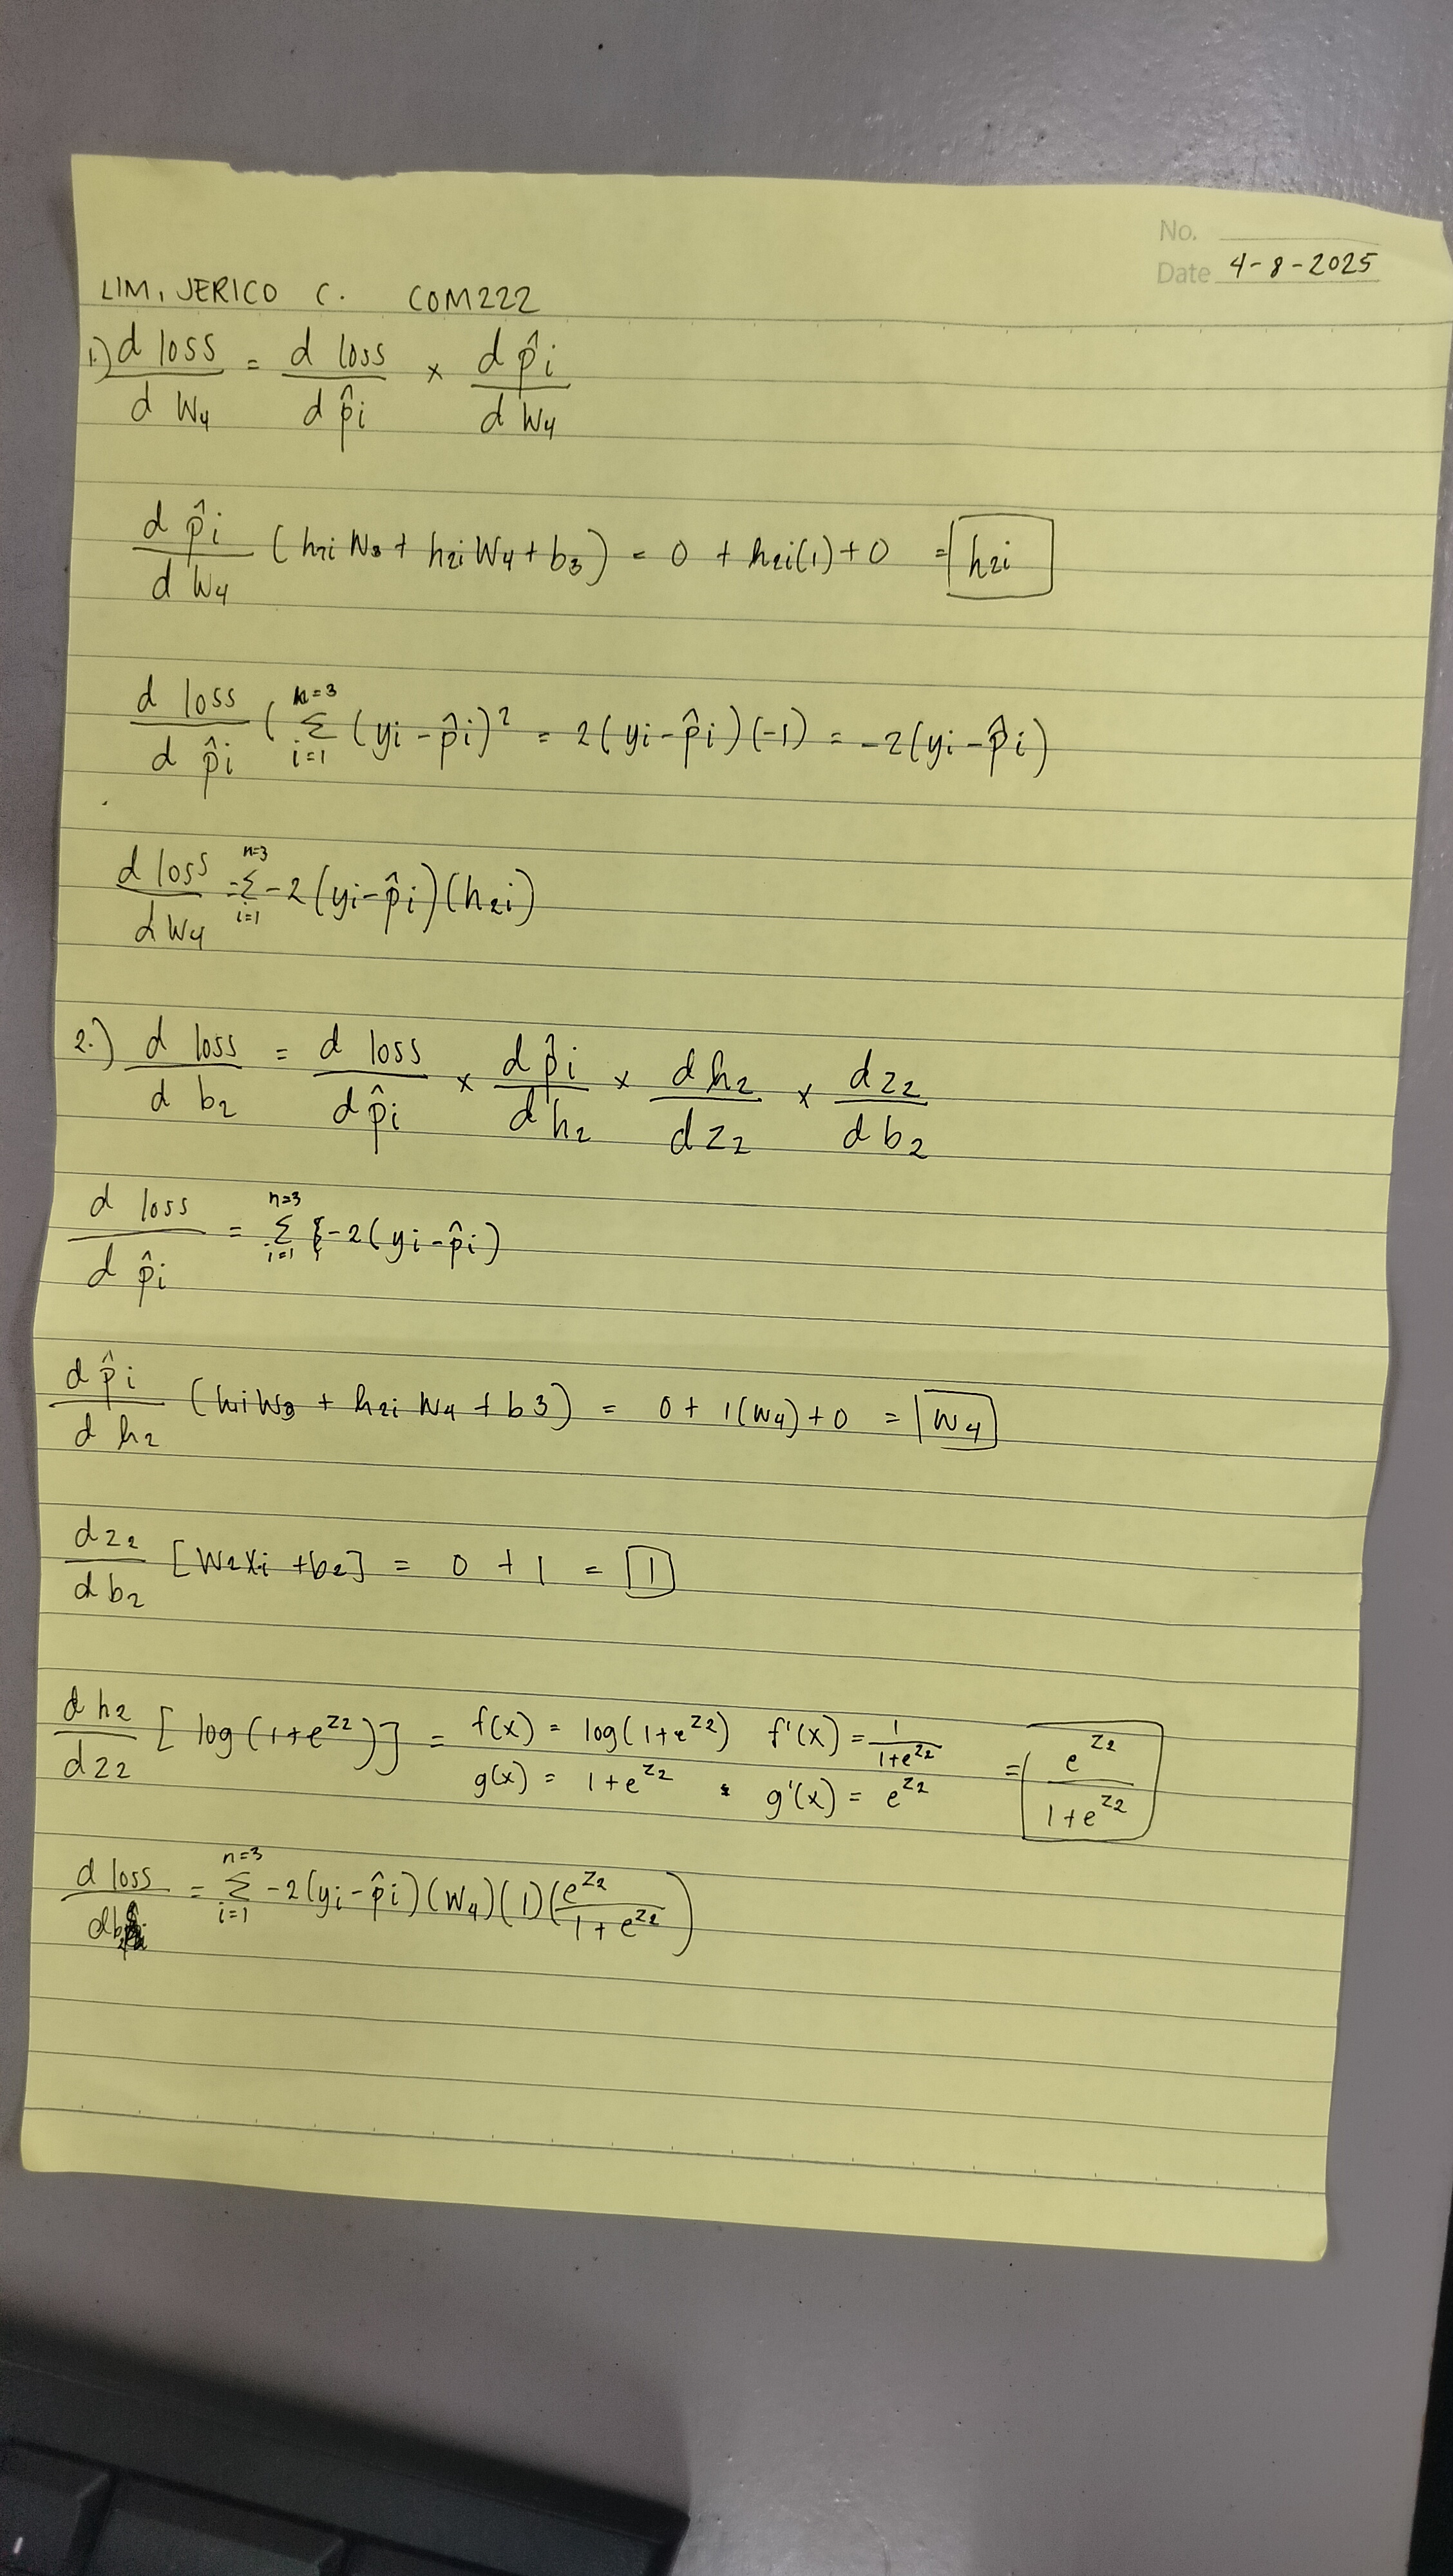 No.
Date 4-8-2025
LIM, JERICO C. COM222
1.) d loss / d W4 = d loss / d p̂i × d p̂i / d W4
d p̂i / d W4 (h1i W3 + h2i W4 + b3) = 0 + h2i(1) + 0 = h2i
d loss / d p̂i ( Σ n=3 i=1 (yi - p̂i)² = 2(yi - p̂i)(-1) = -2(yi - p̂i)
d loss / d W4 = Σ n=3 i=1 -2(yi - p̂i)(h2i)
2.) d loss / d b2 = d loss / d p̂i × d p̂i / d h2 × d h2 / d z2 × d z2 / d b2
d loss / d p̂i = Σ n=3 i=1 {-2(yi - p̂i)
d p̂i / d h2 (h1i W3 + h2i W4 + b3) = 0 + 1(W4) + 0 = W4
d z2 / d b2 [W2Xi + b2] = 0 + 1 = 1
d h2 / d z2 [log(1+e^z2)] = f(x) = log(1+e^z2) f'(x) = 1 / 1+e^z2 = e^z2 / 1+e^z2
g(x) = 1+e^z2 g'(x) = e^z2
d loss / db2 = Σ n=3 i=1 -2(yi - p̂i)(W4)(1)(e^z2 / 1+e^z2)